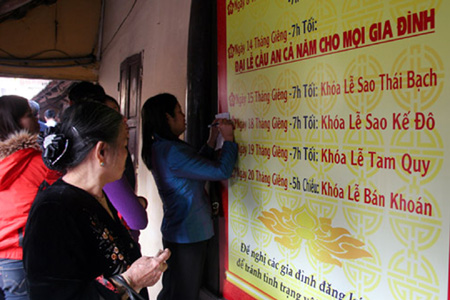 - 7h Tối:
Ngày 14 Tháng Giêng -7h Tối:
ĐẠI LỄ CẦU AN CẢ NĂM CHO MỌI GIA ĐÌNH
Ngày 15 Tháng Giêng -7h Tối: Khóa Lễ Sao Thái Bạch
Ngày 18 Tháng Giêng -7h Tối: Khóa Lễ Sao Kế Đô
Ngày 19 Tháng Giêng -7h Tối: Khóa Lễ Tam Quy
Ngày 20 Tháng Giêng -5h Chiều: Khóa Lễ Bán Khoán
Đề nghị các gia đình đăng
để tránh tình trạng